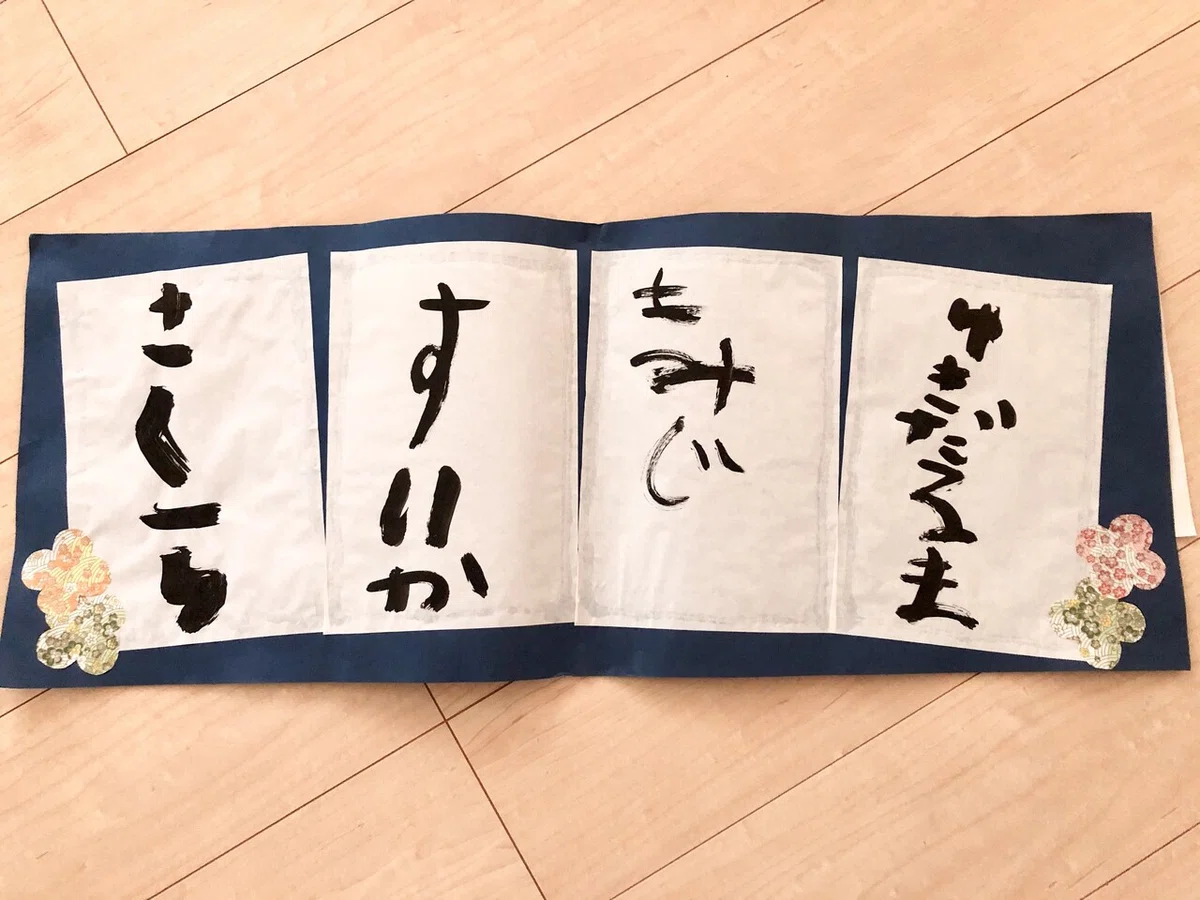 さくら
すいか
もみじ
ゆきだるま